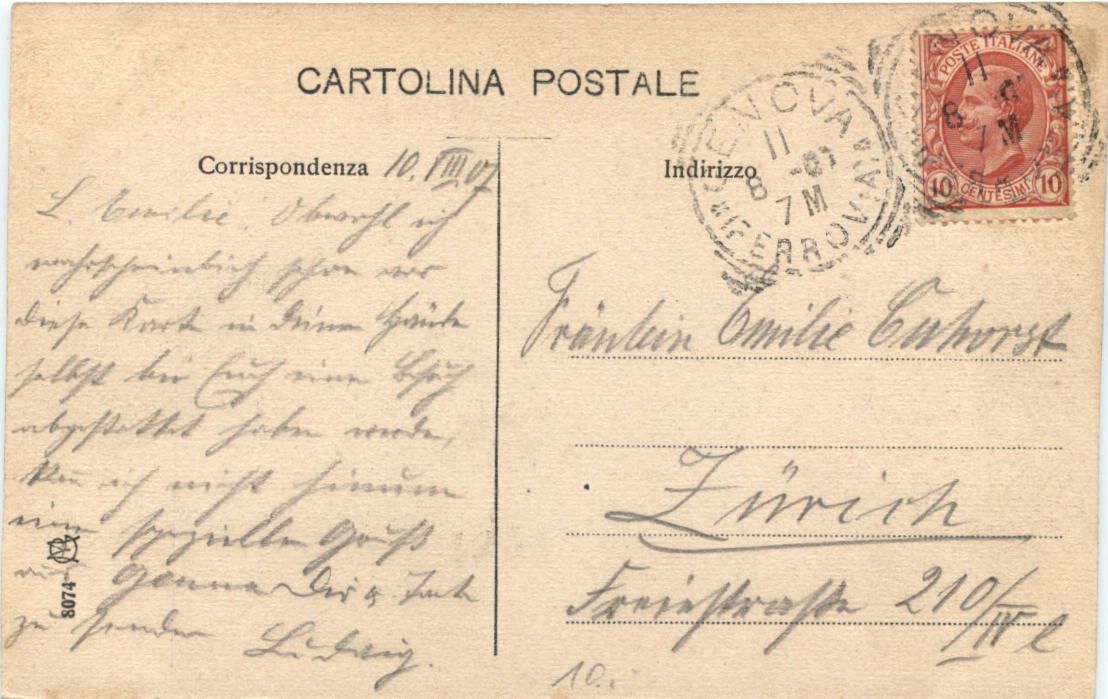 CARTOLINA POSTALE
Corrispondenza 10. VIII 07
L. Emilie. Obwohl ich
wahrscheinlich schon vor
diese Karte in Deinen Hände
selbst bei Euch einen Besuch
abgestattet haben werde,
kann ich nicht
einen speziellen Gruß
aus Genua Dir &
zu senden Ludwig.
8074
Indirizzo
GENOVA
11
8 - 07
7 M
FERROVIA
POSTE ITALIANE
10 CENTESIMI 10
GENOVA
11
8
7 M
Fräulein Emilie Cuhorst
Zürich
Freiestraße 210/IV l
10.